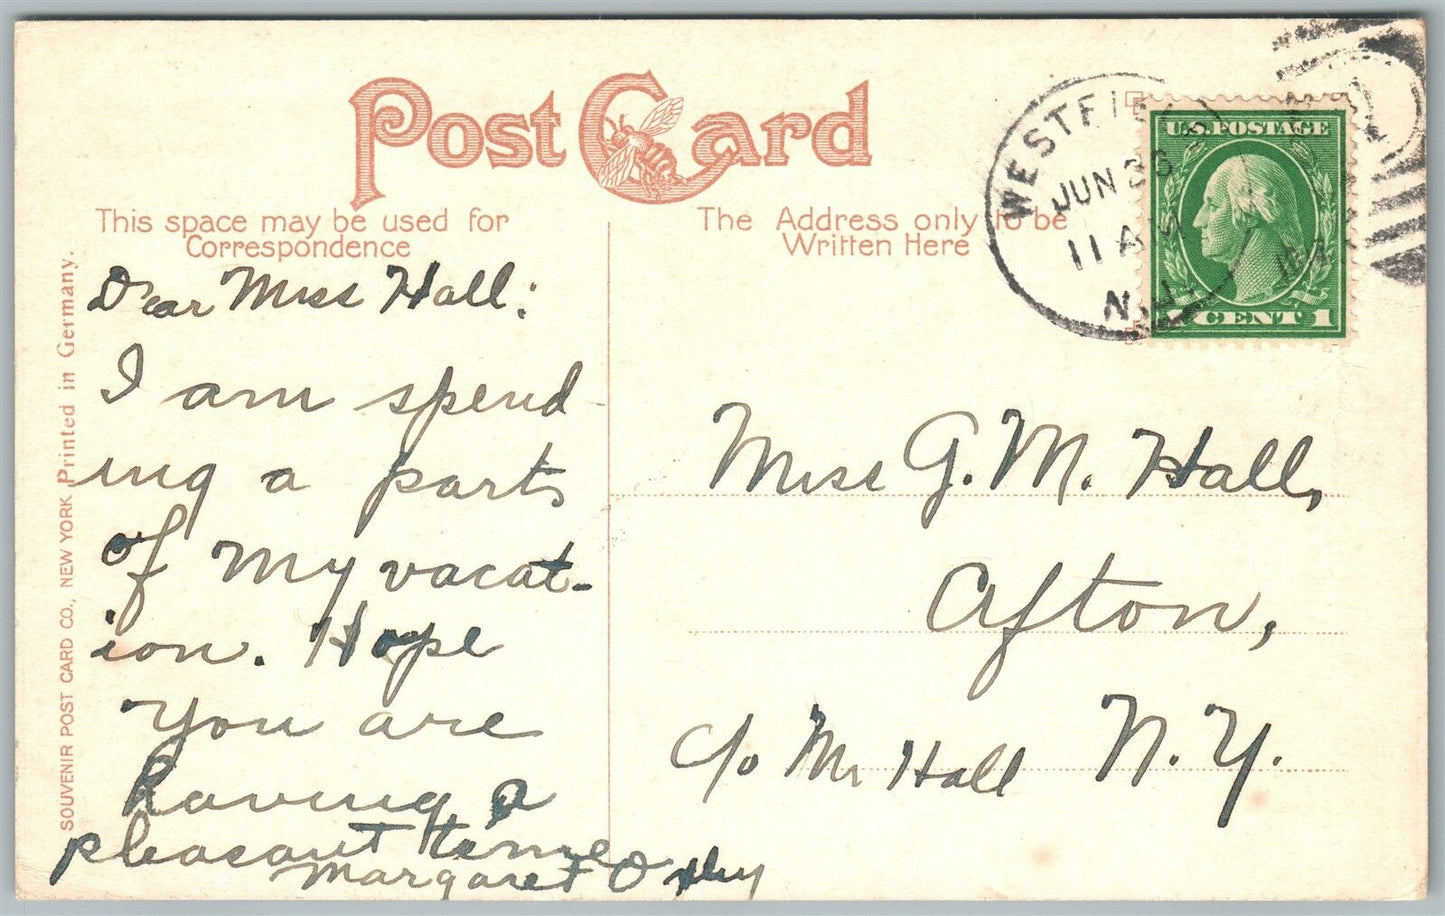 Post Card
This space may be used for
Correspondence
The Address only to be
Written Here
WESTFIELD
JUN 26
11 A
N.J.
U.S. POSTAGE
1 CENT 1
SOUVENIR POST CARD CO., NEW YORK Printed in Germany.
Dear Miss Hall:
I am spend
ing a part
of my vacat-
ion. Hope
you are
having a
pleasant time
Margaret
Miss G. M. Hall,
Afton,
N. Y.
c/o Mr Hall